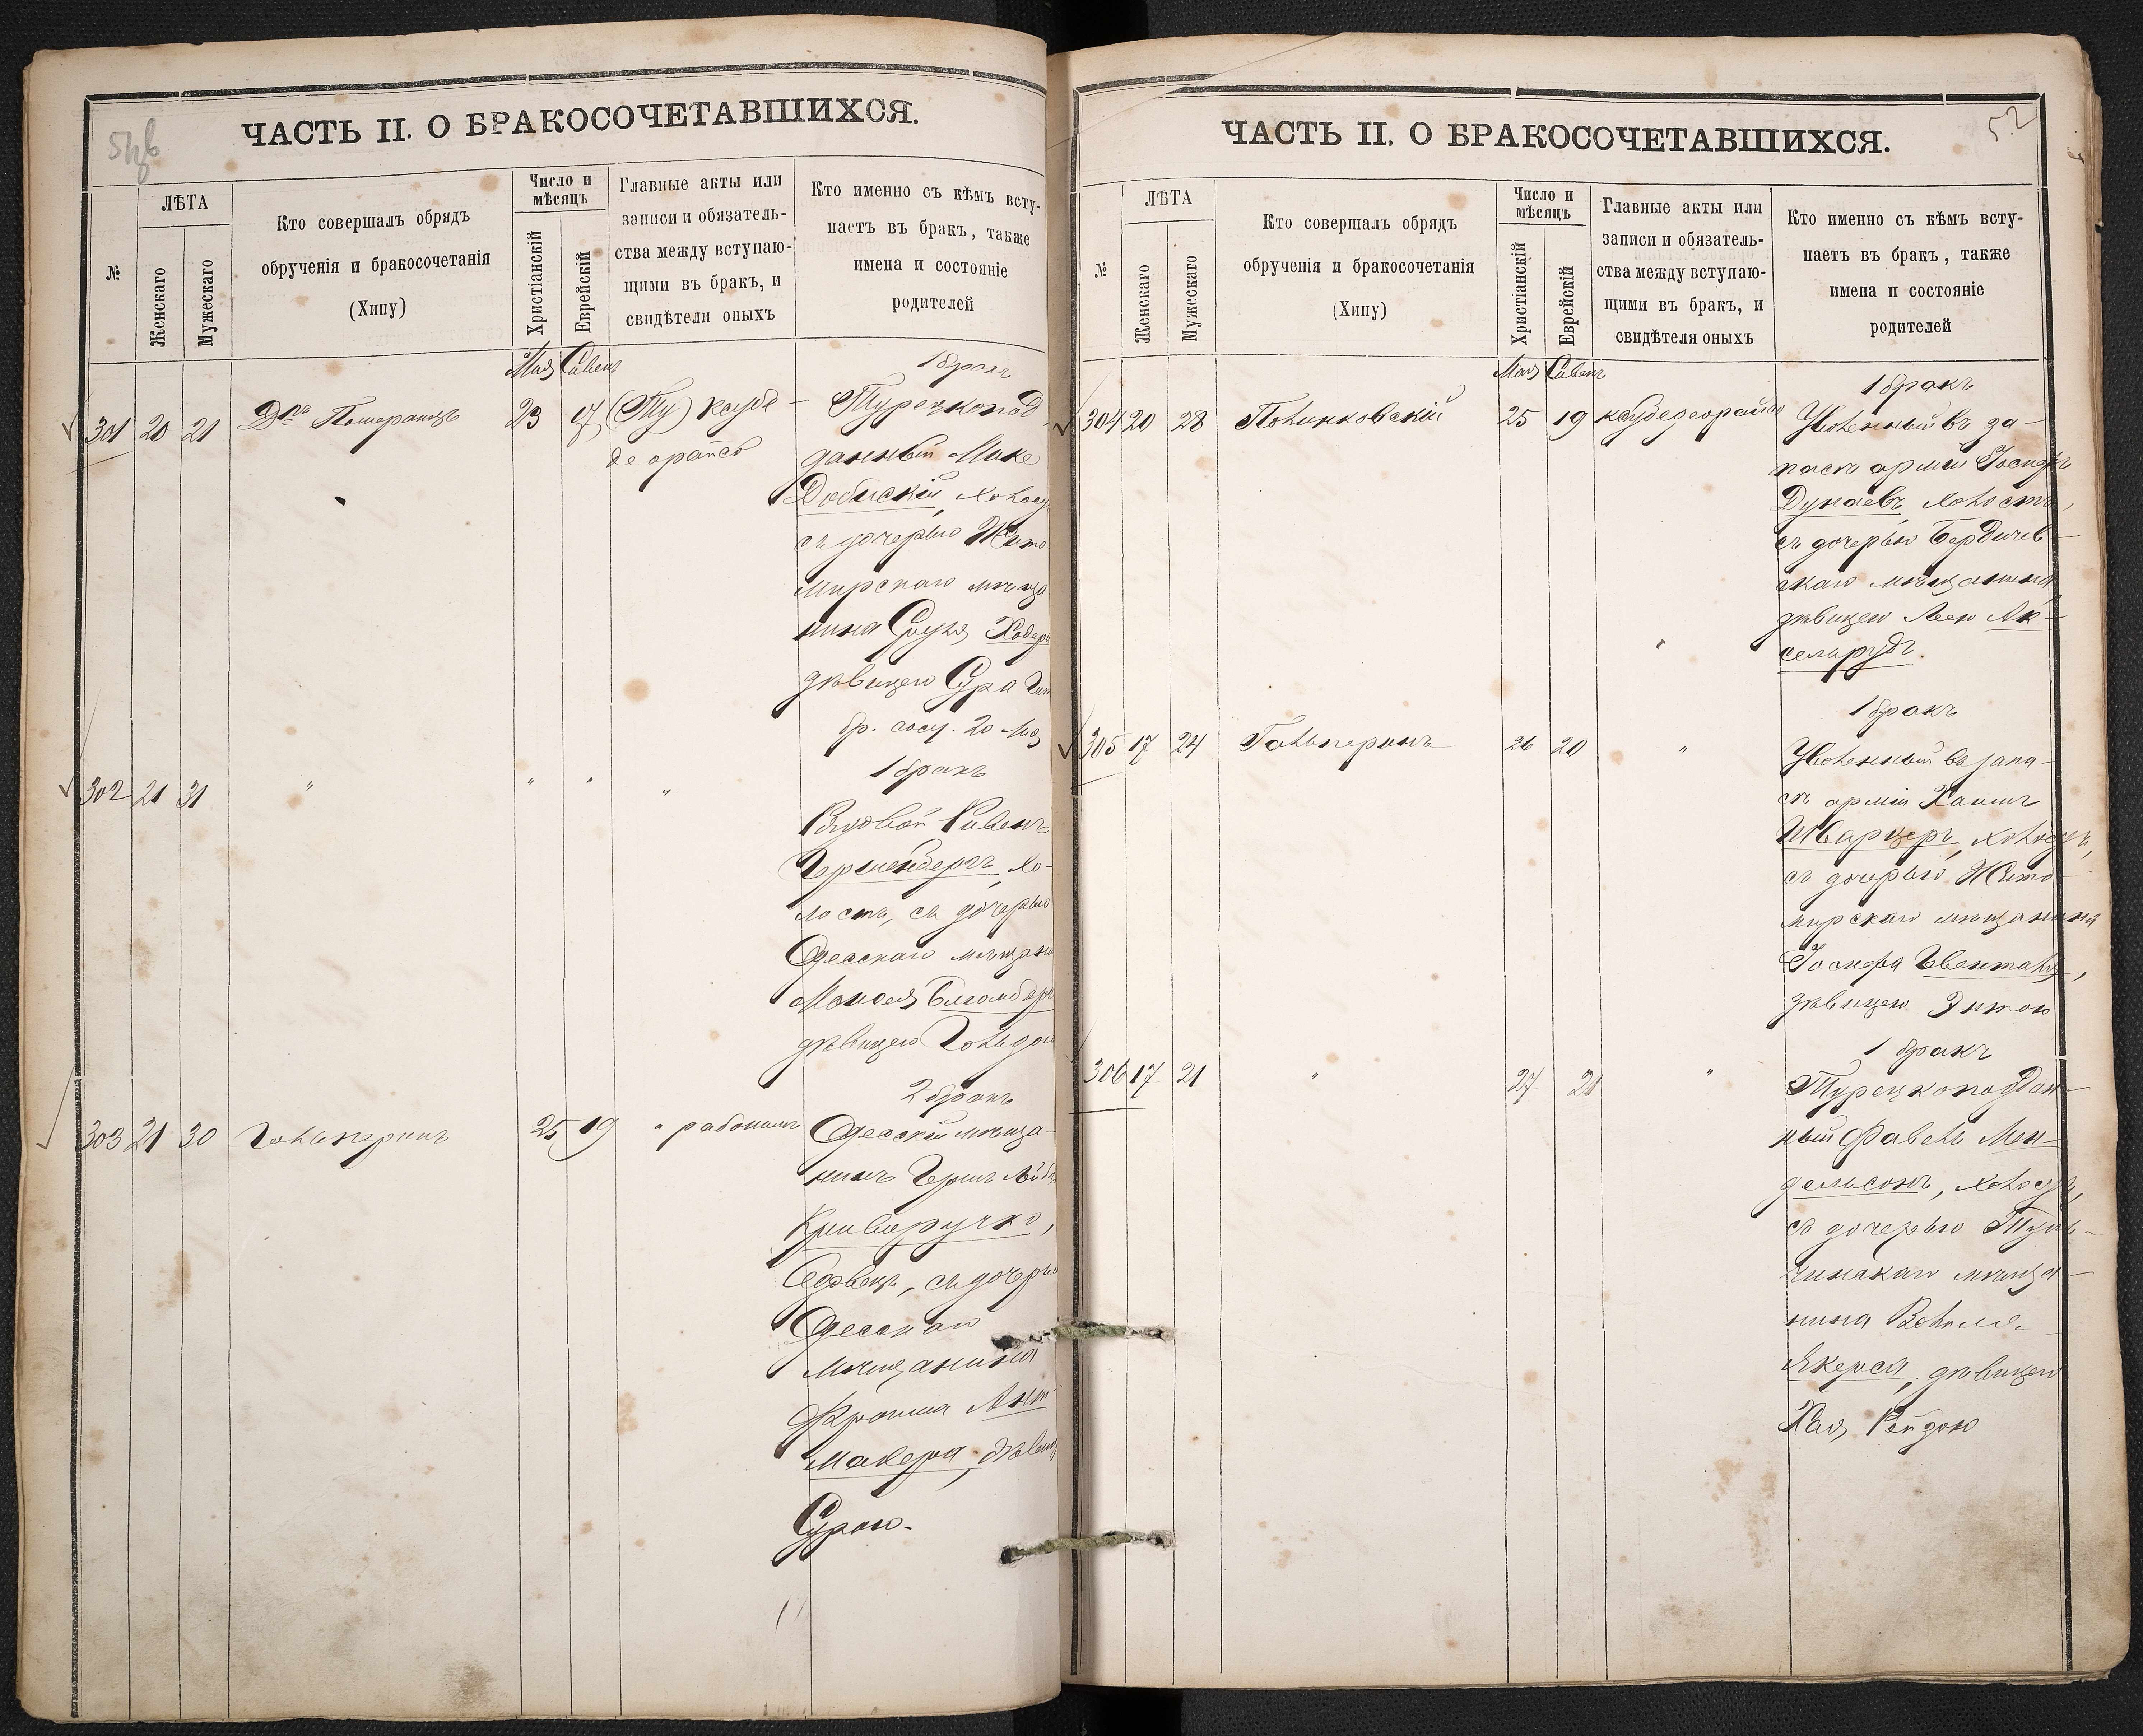 ЧАСТЬ II. О БРАКОСОЧЕТАВШИХСЯ.
№
ЛѢТА
Женскаго
Мужескаго
Кто совершалъ обрядъ
обрученія и бракосочетанія
(Хипу)
Число и
мѣсяцъ
Христіанскій
Еврейскій
Главные акты или
записи и обязатель-
ства между вступаю-
щими въ бракъ, и
свидѣтели оныхъ
Кто именно съ кѣмъ всту-
паетъ въ бракъ, также
имена и состояніе
родителей
Мая Сивен
301 20 21
Померанцъ
23 17
1 бракъ
Турецкопод
данный
Добискій, холост
съ дочерью Жито-
мирскаго мѣща
нина Сруля
дѣвицею Сура
бр. сосч. 20 Мая
302 21 31 " " " "
1 бракъ
Рядовой Рувенъ
Гриненбергъ, хо-
лостъ, съ дочерью
Одесскаго мѣщани
Моисея
дѣвицею Гольдою
303 21 30 Гальперинъ 25 19 "
2 бракъ
Одесскій мѣща-
нинъ Герш Лейб
Криворучко,
съ дочерью
Одесскаго
мѣщанина
Фроима Аш
макера, дѣвиц
Сурою.
ЧАСТЬ II. О БРАКОСОЧЕТАВШИХСЯ.
52
№
ЛѢТА
Женскаго
Мужескаго
Кто совершалъ обрядъ
обрученія и бракосочетанія
(Хипу)
Число и
мѣсяцъ
Христіанскій
Еврейскій
Главные акты или
записи и обязатель-
ства между вступаю-
щими въ бракъ, и
свидѣтеля оныхъ
Кто именно съ кѣмъ всту-
паетъ въ бракъ, также
имена и состояніе
родителей
Мая Сивен
304 20 28 Полинковскій 25 19
1 бракъ
Уволенный въ за-
пасъ арміи Іосифъ
Дунаевъ, холостъ,
съ дочерью Бердичев-
скаго мѣщанина
дѣвицею Леею Ак-
сельрудъ.
305 17 24 Гальперинъ 26 20 "
1 бракъ
Уволенный въ запа-
съ арміи Хаимъ
Шварцеръ, холостъ,
съ дочерью Жито-
мирскаго мѣщанина
дѣвицею Энтою
306 17 21 " 27 21 "
1 бракъ
Турецкоподдан-
ный Фавель Мен-
дельсонъ, холостъ,
съ дочерью Туль-
чинскаго мѣща-
нина
дѣвицею
Хая Рейзою